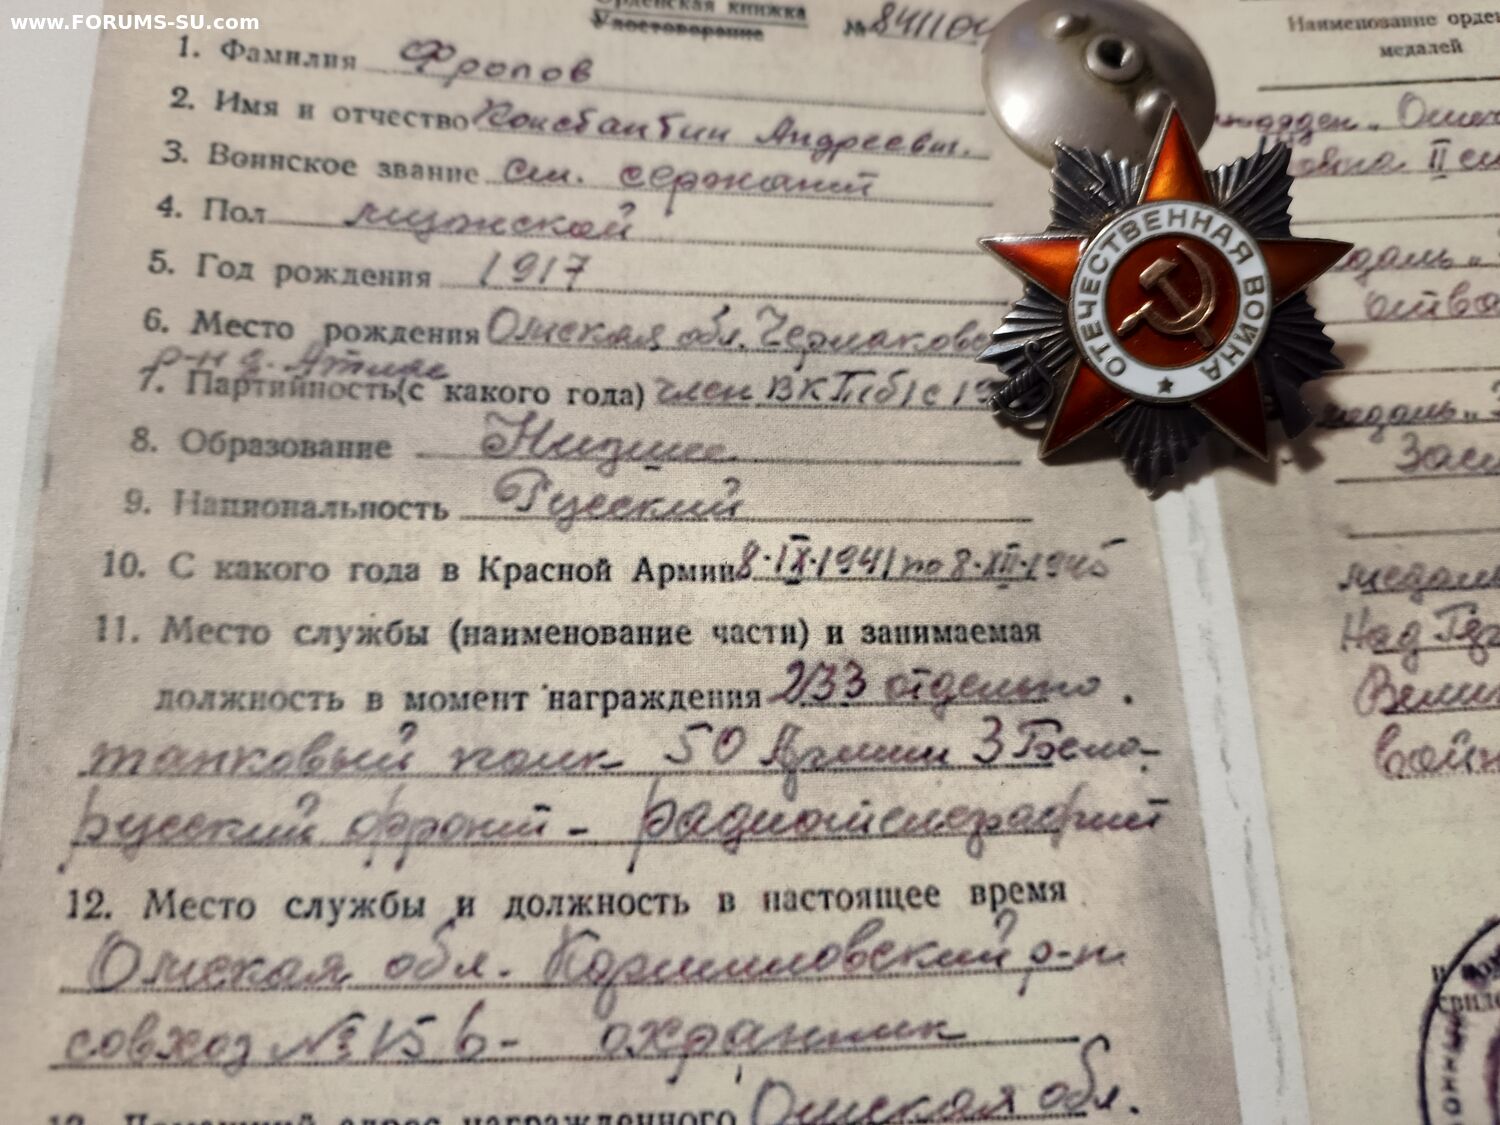 www.FORUMS-SU.com
Орденская книжка
Удостоверение
№ 841104
1. Фамилия Фролов
2. Имя и отчество Константин Андреевич.
3. Воинское звание ст. сержант
4. Пол мужской
5. Год рождения 1917
6. Место рождения Омская обл. Черлаковс
р-н д.
7. Партийность(с какого года) член ВКП(б) с 19
8. Образование Низшее
9. Национальность Русский
10. С какого года в Красной Армии 8.IX.1941 по 8.XII.1945
11. Место службы (наименование части) и занимаемая
должность в момент награждения 233 отдельно.
танковый полк 50 Армии 3 Бело-
русский фронт - радиотелеграфист
12. Место службы и должность в настоящее время
Омская обл. Кормиловский р-н.
совхоз № 15 б- охранник
13. Домашний адрес награжденного Омская обл.
Наименование орде
медалей
Оте
Война II ст
ОТЕЧЕСТВЕННАЯ ВОЙНА
едаль „З
отва
медаль „З
Засл
медаль
Над Гер
Вели
войн
и
свид